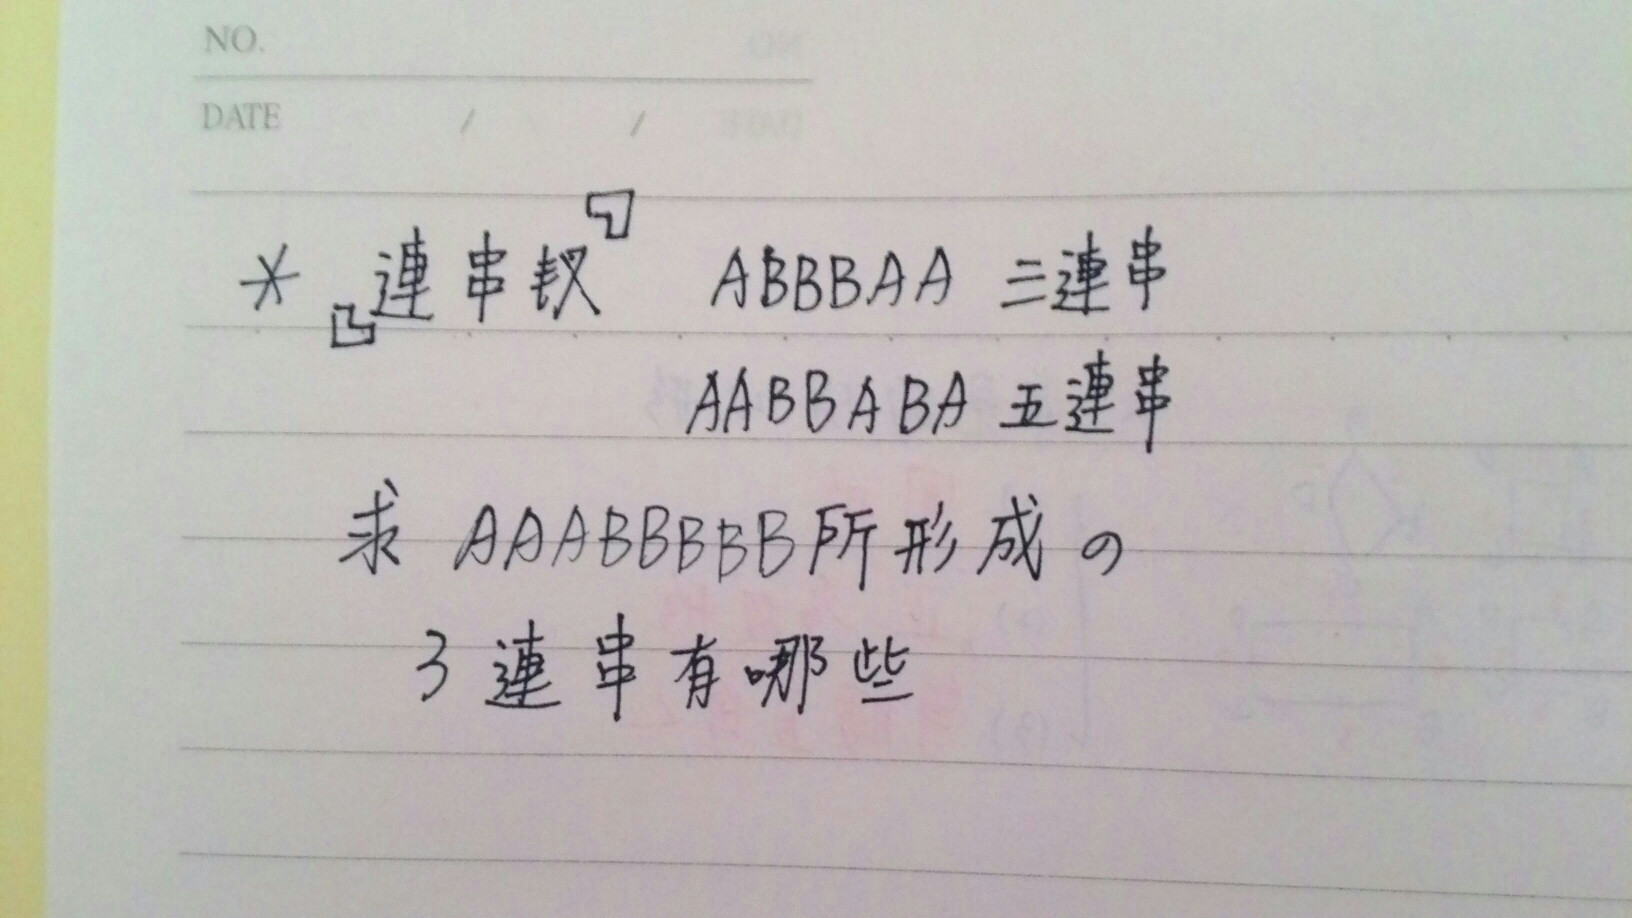 NO.
DATE / /
* 『連串数』 ABBBAA 三連串
AABBABA 五連串
求 AAABBBBB所形成の
3連串有哪些